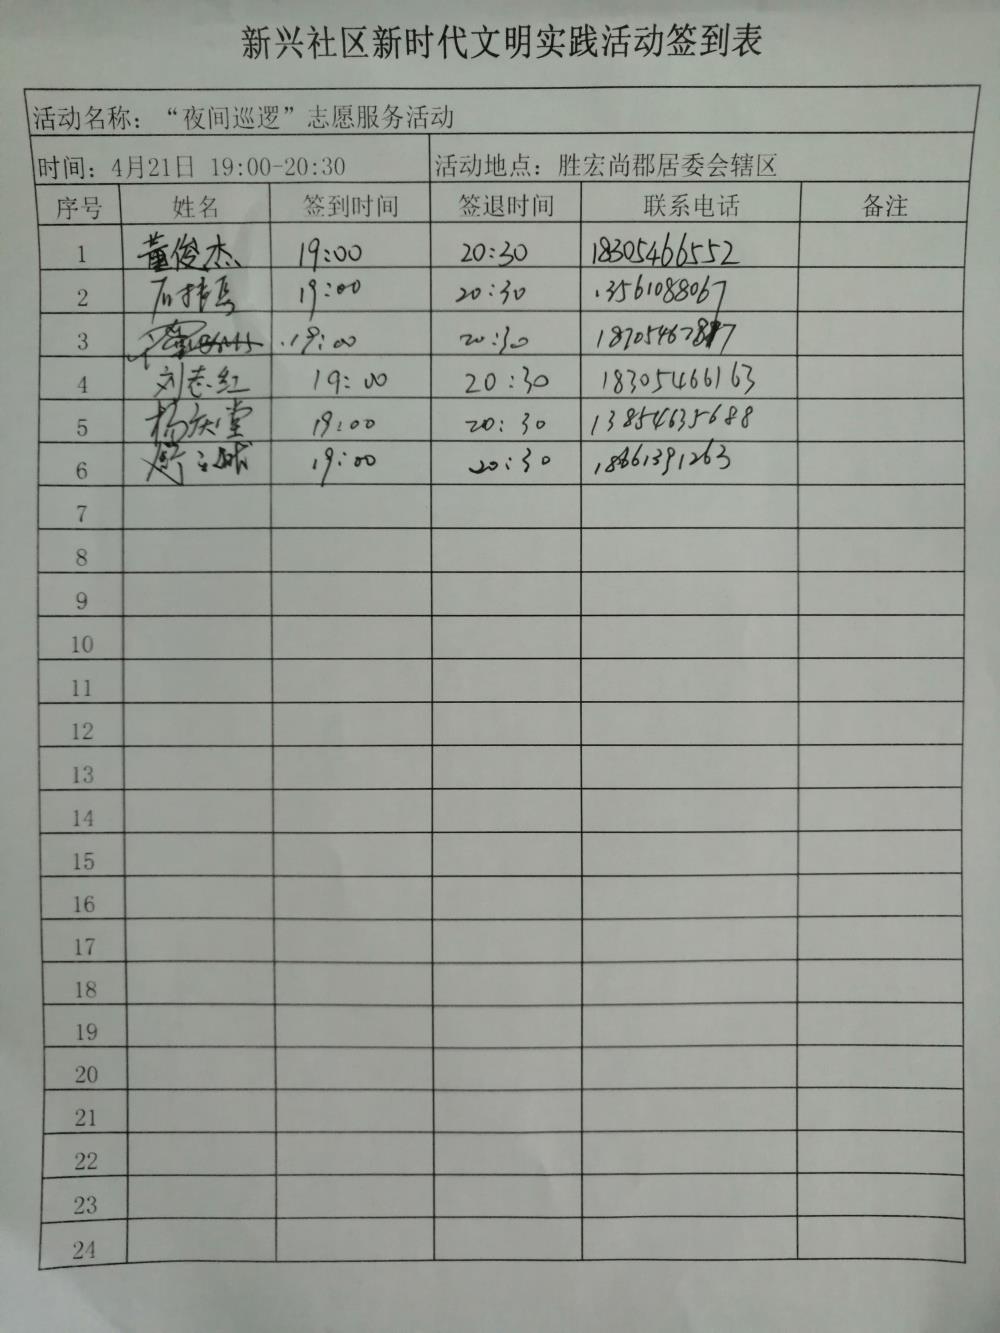 新兴社区新时代文明实践活动签到表
活动名称：“夜间巡逻”志愿服务活动
时间：4月21日 19:00-20:30 活动地点：胜宏尚郡居委会辖区
序号 姓名 签到时间 签退时间 联系电话 备注
1 董俊杰 19:00 20:30 18305466552
2 19:00 20:30 13561088067
3 19:00 20:30
4 刘志红 19:00 20:30 18305466163
5 杨庆堂 19:00 20:30 13854635688
6 19:00 20:30 18661391263
7
8
9
10
11
12
13
14
15
16
17
18
19
20
21
22
23
24